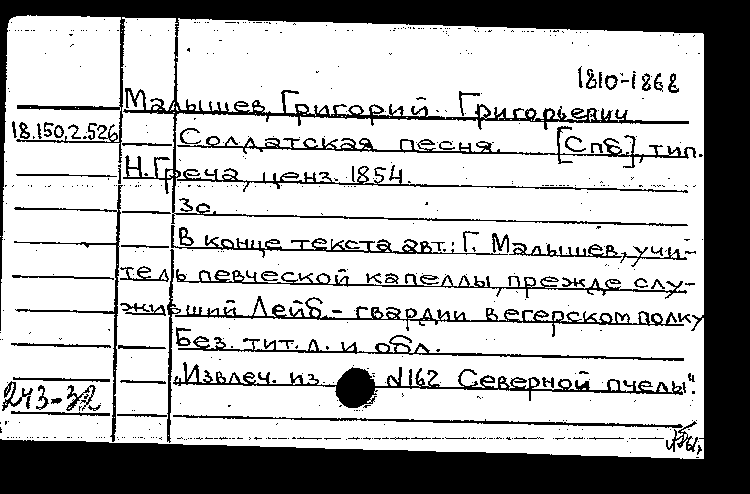 1810-1868
Малышев, Григорий Григорьевич
18.150.2.526 Солдатская песня. [Спб.], тип.
Н. Греча, ценз. 1854.
3с.
В конце текста авт.: Г. Малышев, учи-
тель певческой капеллы, прежде слу-
живший Лейб.- гвардии в егерском полку
Без. тит. л. и обл.
"Извлеч. из № 162 Северной пчелы".
243-32